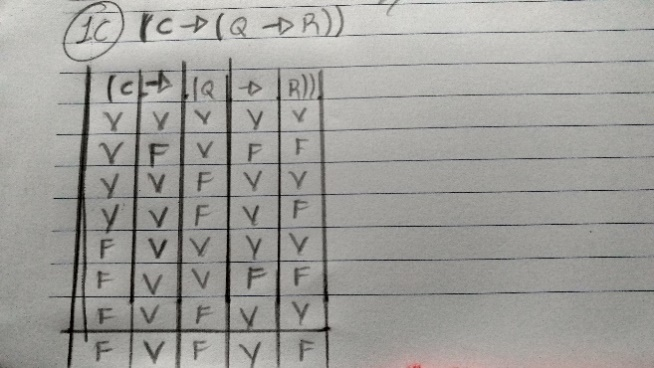 1C (C → (Q → R))
(C → (Q → R))
V V V V V
V F V F F
V V F V V
V V F V F
F V V V V
F V V F F
F V F V V
F V F V F